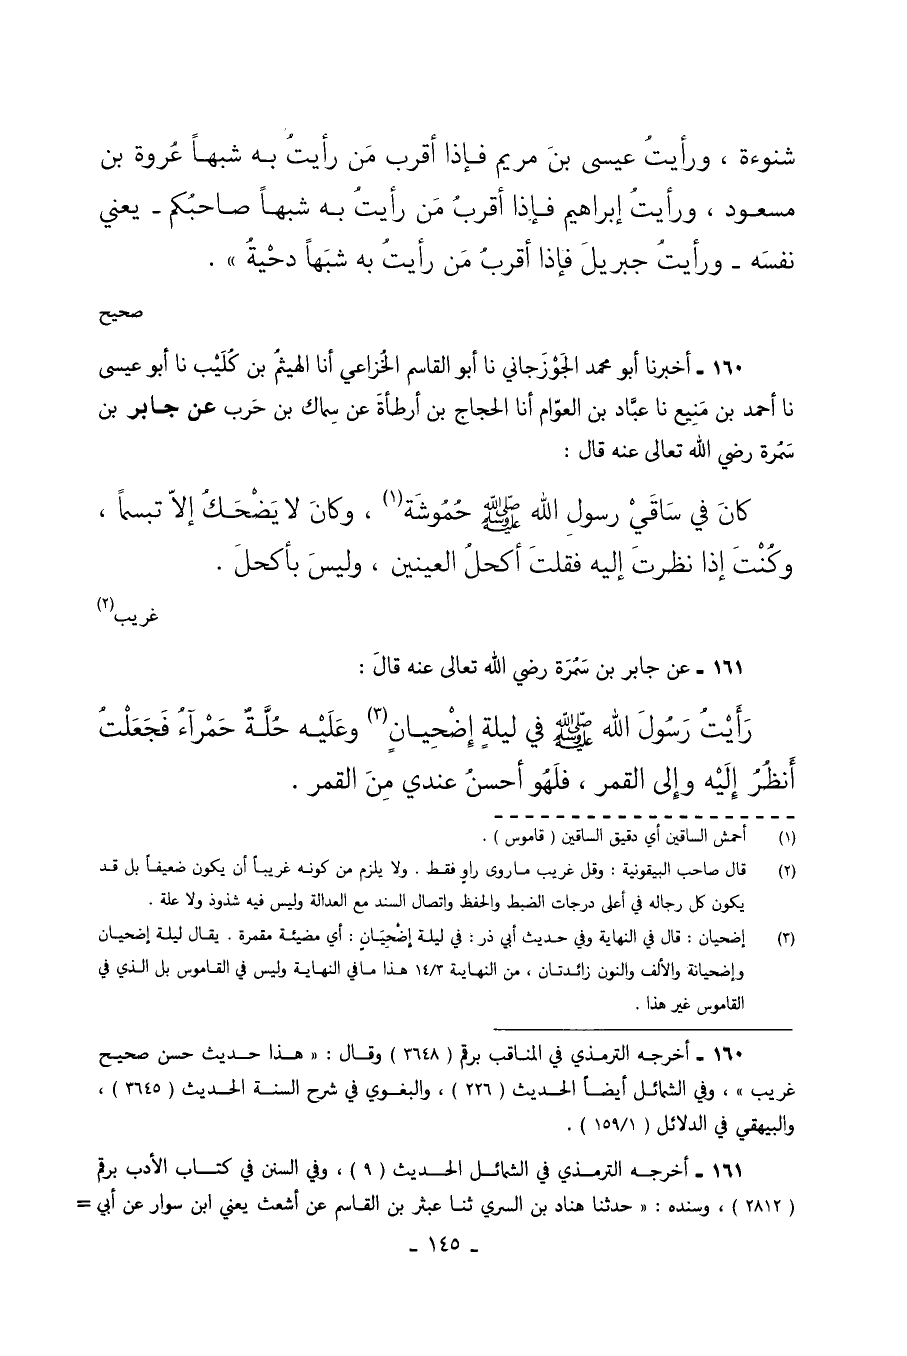 شنوءة ، ورأيتُ عيسى بنَ مريم فإذا أقرب مَن رأيتُ به شبهاً عُروة بن
مسعود ، ورأيتُ إبراهيم فإذا أقربُ مَن رأيتُ به شبهاً صاحبُكم ـ يعني
نفسَه ـ ورأيتُ جبريلَ فإذا أقربُ مَن رأيتُ به شبَهاً دحْيةُ » .
صحيح
١٦٠ ـ أخبرنا أبو محمد الجَوْزَجاني نا أبو القاسم الخُزاعي أنا الهيثمُ بن كُلَيْب نا أبو عيسى
نا أحمد بن مَنِيع نا عبَّاد بن العوّام أنا الحجاج بن أرطأةَ عن سِماك بن حَرب عن جابر بن
سَمُرة رضي الله تعالى عنه قال :
كانَ في سَاقَيْ رسول الله ﷺ حُمُوشَة(١) ، وكانَ لا يَضْحَكُ إلاّ تبسماً ،
وكُنْتَ إذا نظرتَ إليه فقلتَ أكحلُ العينين ، وليسَ بأكحلَ .
غريب(٢)
١٦١ ـ عن جابر بن سَمُرَة رضي الله تعالى عنه قالَ :
رَأَيْتُ رَسُولَ الله ﷺ في ليلةٍ إضْحِيانٍ(٣) وعَلَيْه حُلَّةٌ حَمْرآءُ فَجَعَلْتُ
أَنظُرُ إلَيْه وإلى القمر ، فلَهُو أحسنُ عندي مِنَ القمر .
(١) أحمش الساقين أي دقيق الساقين ( قاموس ) .
(٢) قال صاحب البيقونية : وقل غريب ماروى راوٍ فقط . ولا يلزم من كونه غريباً أن يكون ضعيفاً بل قد
يكون كل رجاله في أعلى درجات الضبط والحفظ واتصال السند مع العدالة وليس فيه شذوذ ولا علة .
(٣) إضحيان : قال في النهاية وفي حديث أبي ذر : في ليلة إضْحِيَانٍ : أي مضيئة مقمرة . يقال ليلة إضحيان
وإضحيانة والألف والنون زائدتان ، من النهاية ١٤/٣ هذا مافي النهاية وليس في القاموس بل الذي في
القاموس غير هذا .
١٦٠ ـ أخرجه الترمذي في المناقب برقم ( ٣٦٤٨ ) وقال : « هذا حديث حسن صحيح
غريب » ، وفي الشمائل أيضاً الحديث ( ٢٢٦ ) ، والبغوي في شرح السنة الحديث ( ٣٦٤٥ ) ،
والبيهقي في الدلائل ( ١٥٩/١ ) .
١٦١ ـ أخرجه الترمذي في الشمائل الحديث ( ٩ ) ، وفي السنن في كتاب الأدب برقم
( ٢٨١٢ ) ، وسنده : « حدثنا هناد بن السري ثنا عبثر بن القاسم عن أشعث يعني ابن سوار عن أبي =
ـ ١٤٥ ـ